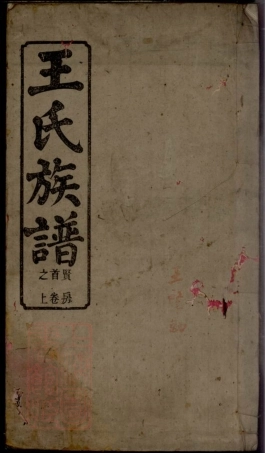 王氏族譜
首卷
之上